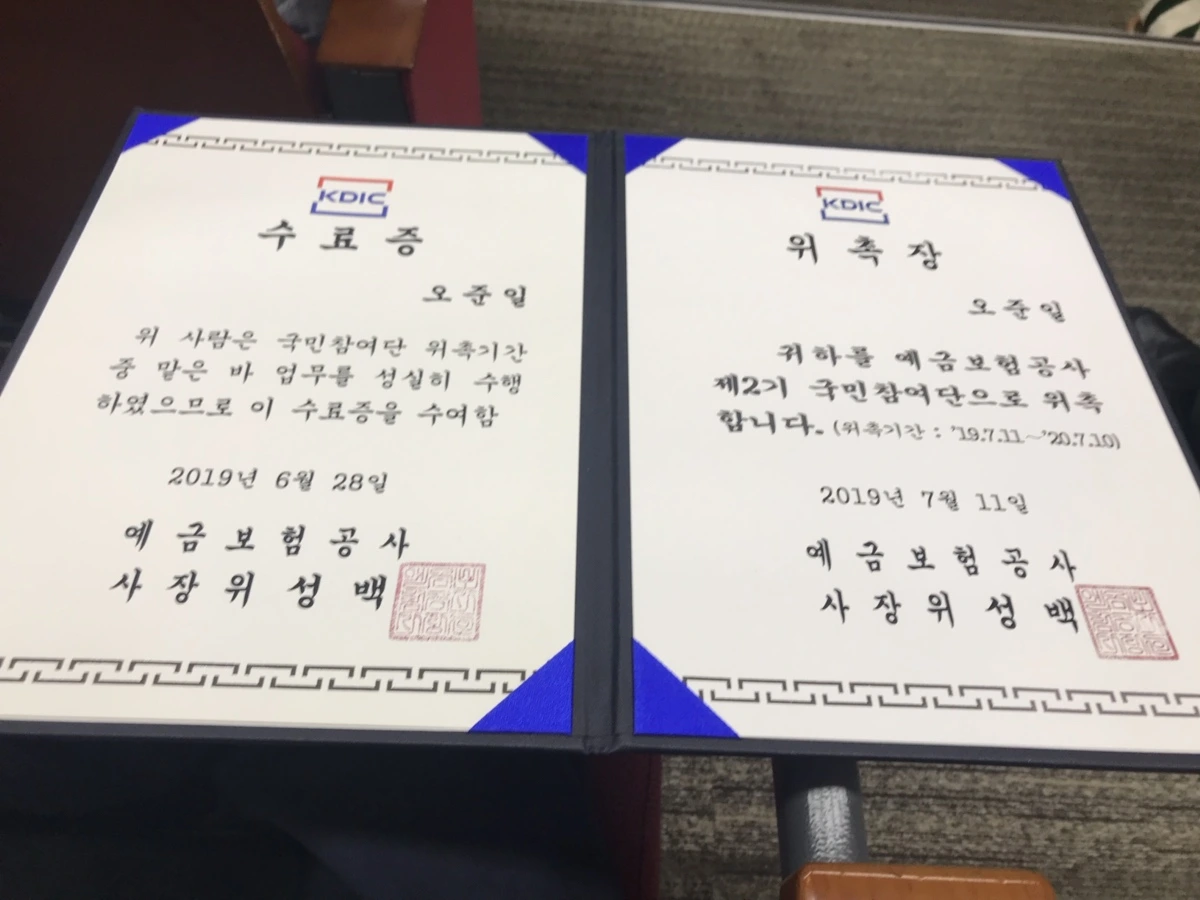 KDIC
수료증
오준일
위 사람은 국민참여단 위촉기간
중 맡은 바 업무를 성실히 수행
하였으므로 이 수료증을 수여함
2019년 6월 28일
예금보험공사
사장위성백
KDIC
위촉장
오준일
귀하를 예금보험공사
제2기 국민참여단으로 위촉
합니다. (위촉기간 : '19.7.11~'20.7.10)
2019년 7월 11일
예금보험공사
사장위성백